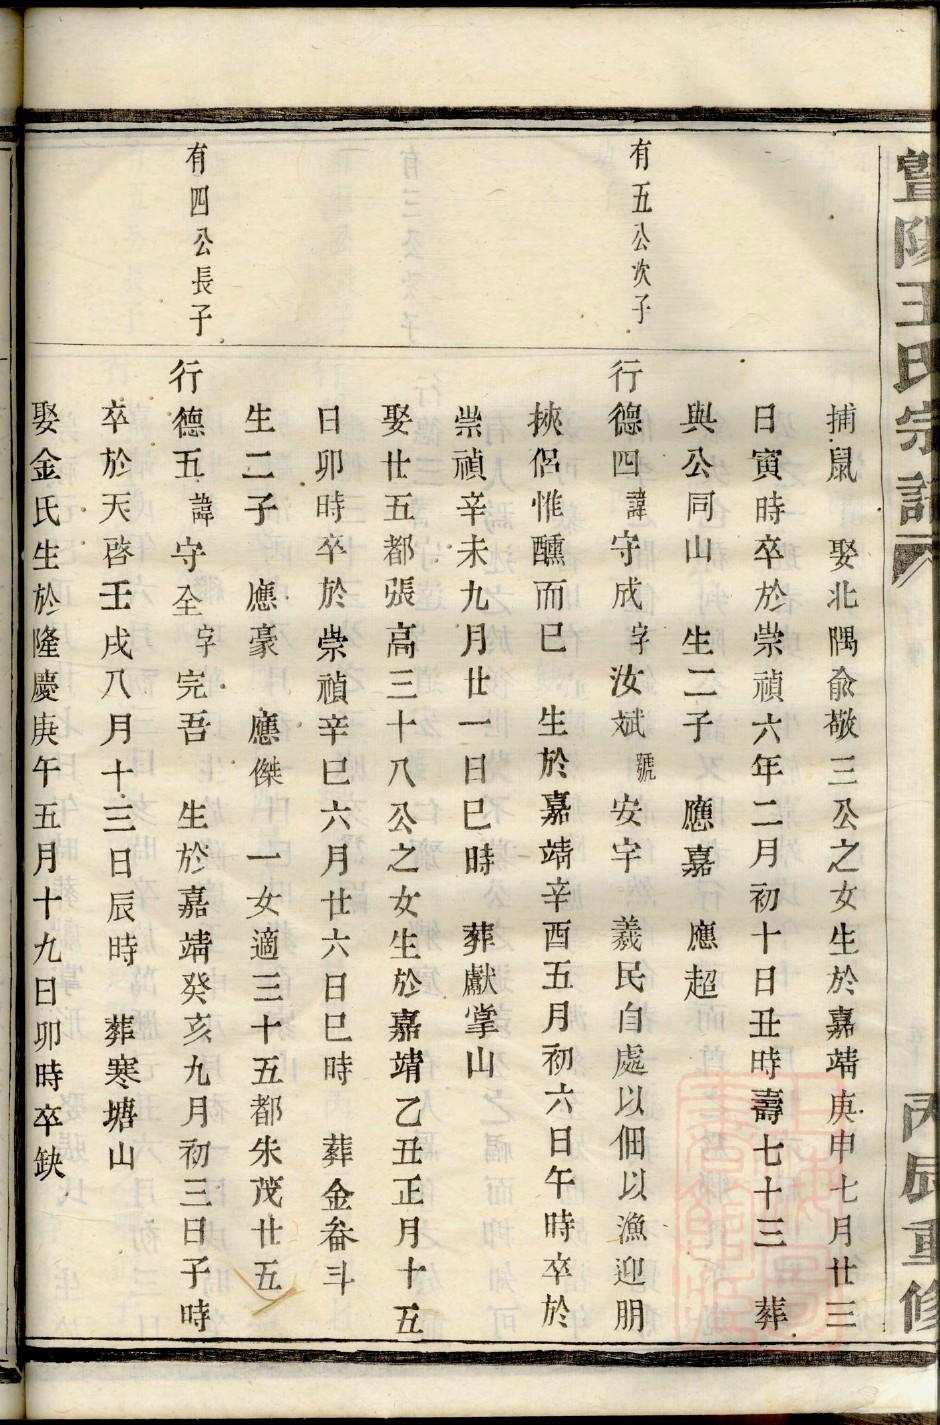 暨陽王氏宗譜
丙辰重修
捕鼠　娶北隅俞敬三公之女生於嘉靖庚申七月廿三
日寅時卒於崇禎六年二月初十日丑時壽七十三　葬
與公同山　生二子　應嘉　應超
有五公次子
行德四諱守成字汝斌號安宇　義民自處以佃以漁迎朋
挾侶惟醺而已　生於嘉靖辛酉五月初六日午時卒於
崇禎辛未九月廿一日巳時　葬獻掌山
娶廿五都張高三十八公之女生於嘉靖乙丑正月十五
日卯時卒於崇禎辛巳六月廿六日巳時　葬金畚斗
生二子　應豪　應傑　一女適三十五都朱茂廿五
有四公長子
行德五諱守全字完吾　生於嘉靖癸亥九月初三日子時
卒於天啓壬戌八月十三日辰時　葬寒塘山
娶金氏生於隆慶庚午五月十九日卯時卒缺